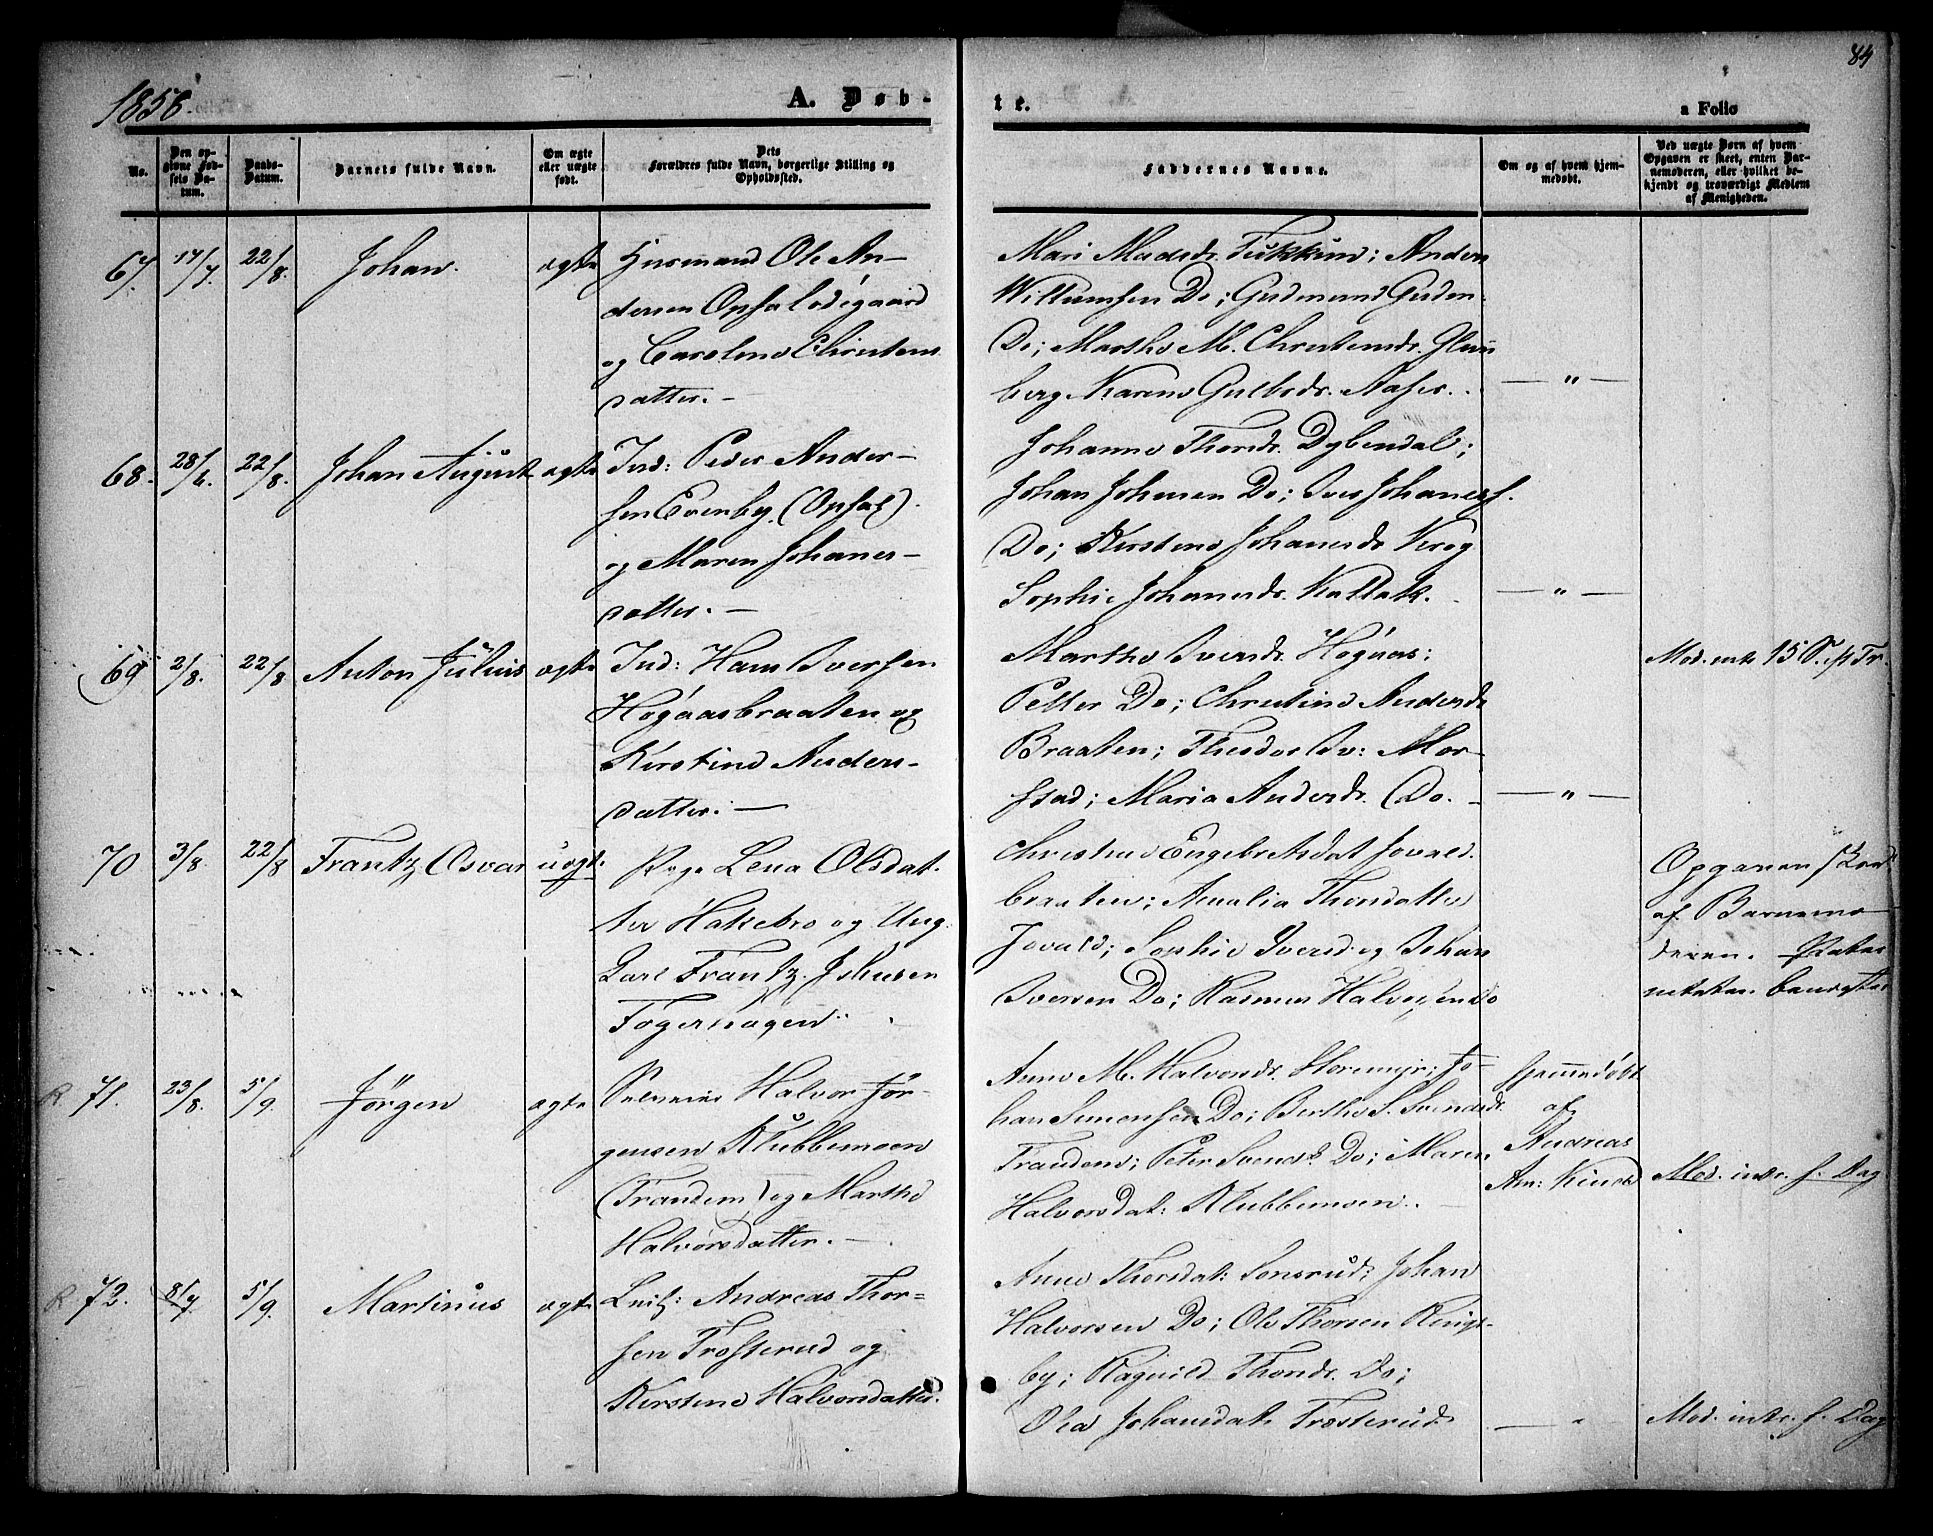 84
1856.
A. Døb-
te.
a Folio
No.
Den op-
givne Fød-
sels Da-
tum.
Daabs-
Datum.
Barnets fulde Navn.
Om ægte
eller uægte
født.
Dets
Forældres fulde Navn, borgerlige Stilling og
Opholdssted.
Faddernes Navne.
Om og af hvem hjem-
medøbt.
Ved uægte Børn af hvem
Opgaven er skeet, enten Bar-
nemoderen, eller hvilket be-
kjendt og troværdigt Medlem
af Menigheden.
67. 17/7. 22/8. Johan. ægte Husmand Ole An-
dersen Opsalødegaard
og Caroline Christens
datter. —
Mari Madsdr. ; Anders
Willumsen Do; Gudmund Guden-
Do; Marthe M. Christensdr.
berg Karen Gulbrdr. Aaser.
— " —
68. 28/6. 22/8. Johan August ægte Ind: Peder Ander-
sen Evenby (Opsal)
og Maren Johanes-
datter. —
Johanne Thorsdr. Dybendal;
Johan Johnsen Do; Iver Johanesf.
Do; Kirstine Johanesdr. Krog
Sophie Johanesdr. Kallak.
— " —
69 2/8. 22/8 Anton Julius ægte Ind: Hans Iversen
Høgaasbraaten og
Kirstine Anders-
datter: —
Marthe Iversdr. Høgaas;
Petter Do; Christine Andersdr
Braaten; Theodor Iv: Mor-
stad; Maria Andersdr. Do.
— " —
Mod. intr. 15 S. p. Tr.
70 3/8. 22/8 Frantz Osvar uægte Pige Lena Olsdat-
ter Hakebro og Ung.
Carl Frantz Johnsen
Fogerhagen.
Christine Engebretsdat Jovald-
braaten; Amalia Thorsdatter
Jovald; Sophie Iversd. og Johan
Iversen Do; Rasmus Halvorsen Do
Opgaven skeed
af Barnemo-
deren. Pater-
niteten benegtes
R 71. 23/8. 5/9. Jørgen ægte Selveier Halvor Jør-
gensen Klubbemoen
(Trandem) og Marthe
Halvorsdatter. —
Anne M. Halvorsdr. Storemyr; Jo-
han Simensen Do; Berthe S. Svendsdr.
Trandem; Peter Svends. Do; Maren
Halvorsdat: Klubbemoen.
Hjemmedøbt
af
Andreas
Am:
Mod. intr. s. Dag
R 72. 8/7 5/9. Martinus ægte Leil: Andreas Thor-
sen Trosterud og
Kirstine Halvorsdatter.
Anne Thorsdat: Sonsrud; Johan
Halvorsen Do; Ole Thorsen Rings-
by; Ragnild Thorsdr. Do;
Olea Johansdat. Trosterud.
— "
Mod. intr. s. Dag